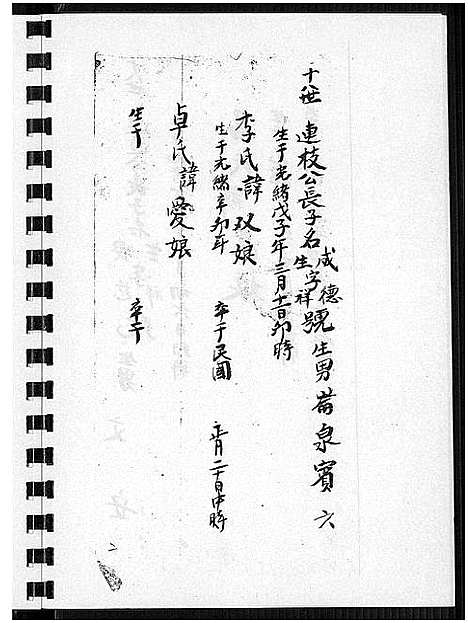 十世 連枝公長子名咸生字德祥號 生男 泉賓 六
生于光緒戊子年三月十一日卯時
李氏諱双娘
生于光緒辛卯年 卒于民國 正月二十日申時
卓氏諱愛娘
生于 卒于